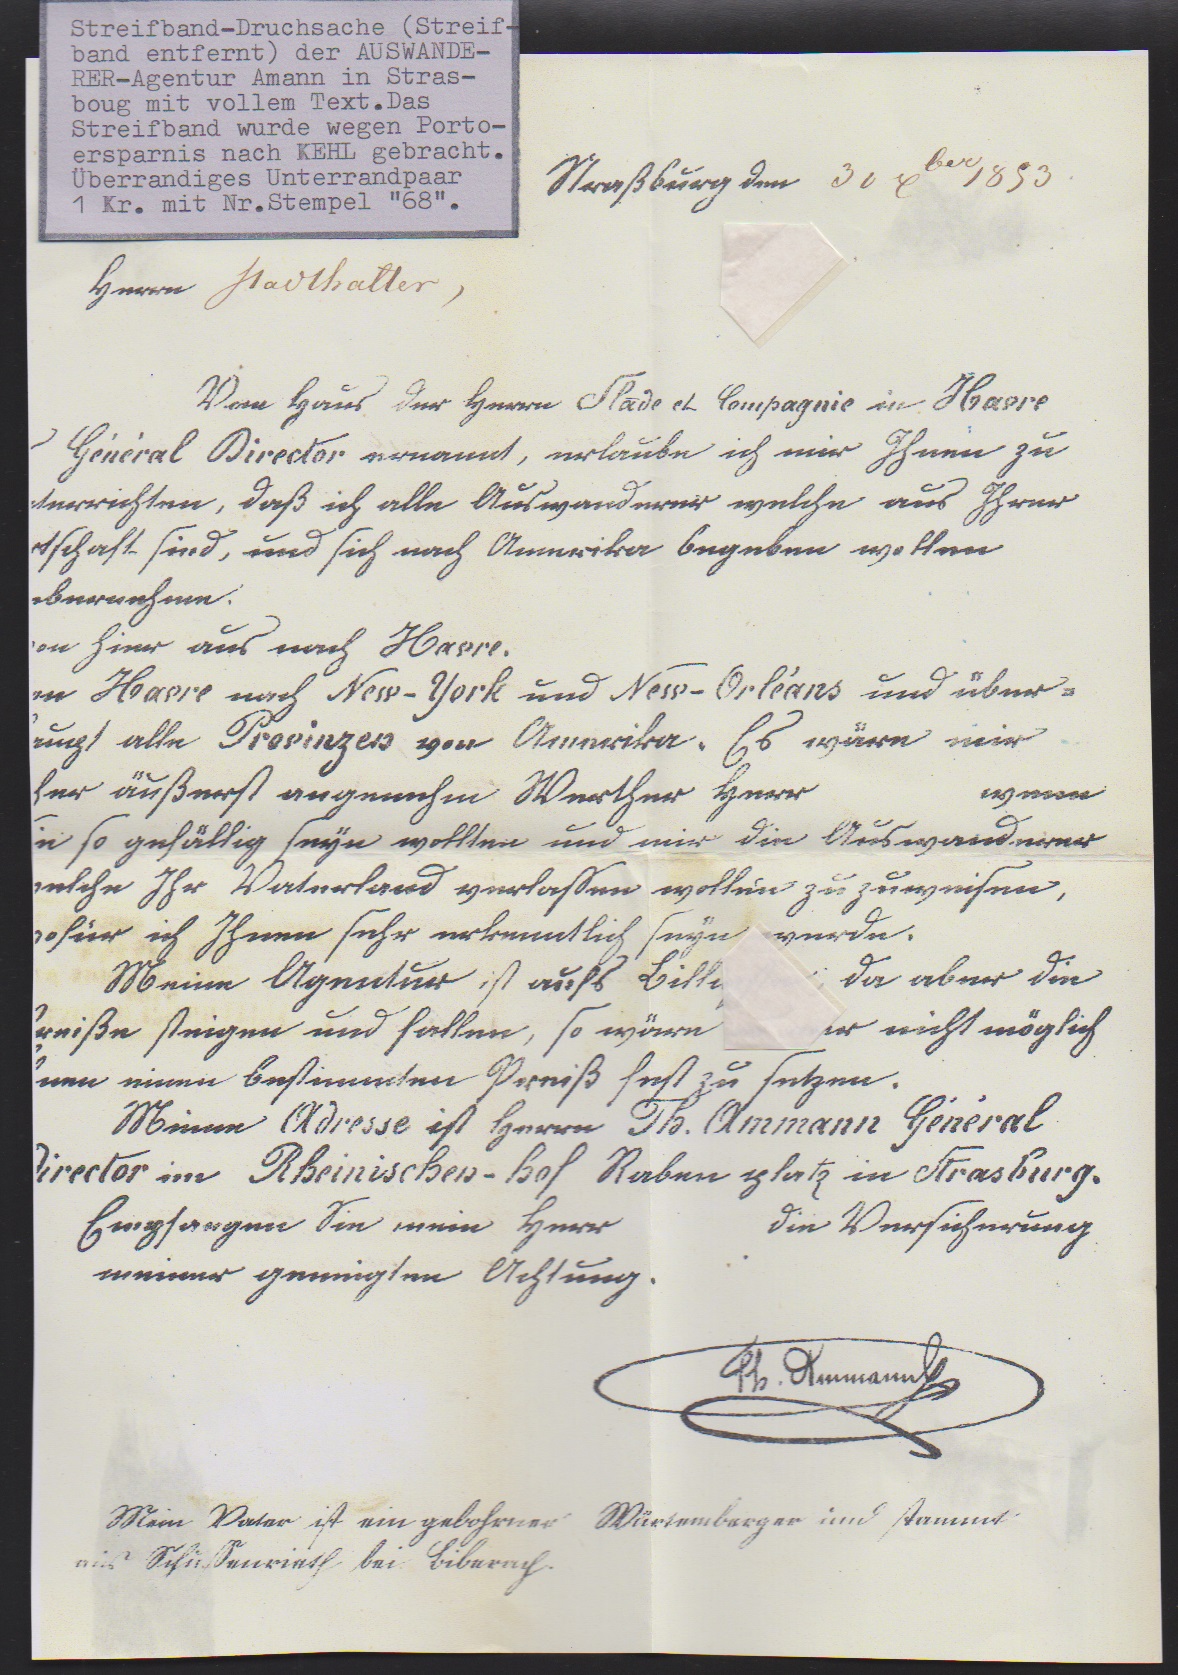 Streifband-Druchsache (Streif-
band entfernt) der AUSWANDE-
RER-Agentur Amann in Stras-
boug mit vollem Text.Das
Streifband wurde wegen Porto-
ersparnis nach KEHL gebracht.
Überrandiges Unterrandpaar
1 Kr. mit Nr.Stempel "68".
Straßburg den 30 Xber 1853
Herrn Stadthalter,
Vom Haus der Herrn Slade et Compagnie in Havre
Général Director ernannt, erlaube ich mir Ihnen zu
terrichten, daß ich alle Auswanderer welche aus Ihrer
tschaft sind, und sich nach Amerika begeben wollen
bernehme.
on hier aus nach Havre.
on Havre nach New-York und New-Orléans und über=
aupt alle Provinzen von Amerika. Es wäre mir
her äußerst angenehm Werther Herr wenn
ie so gefällig seyn wollten und mir die Auswanderer
welche Ihr Vaterland verlassen wollen zu zuweisen,
wofür ich Ihnen sehr erkenntlich seyn werde.
Meine Agentur ist aufs Bill da aber die
Preiße steigen und fallen, so wäre nicht möglich
hnen einen bestimmten Preiß fest zu setzen.
Meine Adresse ist Herrn Th. Ammann Général
Director im Rheinischen-hof Raben platz in Strasburg.
Empfangen Sie mein Herr die Versicherung
meiner geneigten Achtung.
Th. Ammann
Mein Vater ist ein gebohrner Würtemberger und stammt
aus Schussenrieth bei Biberach.